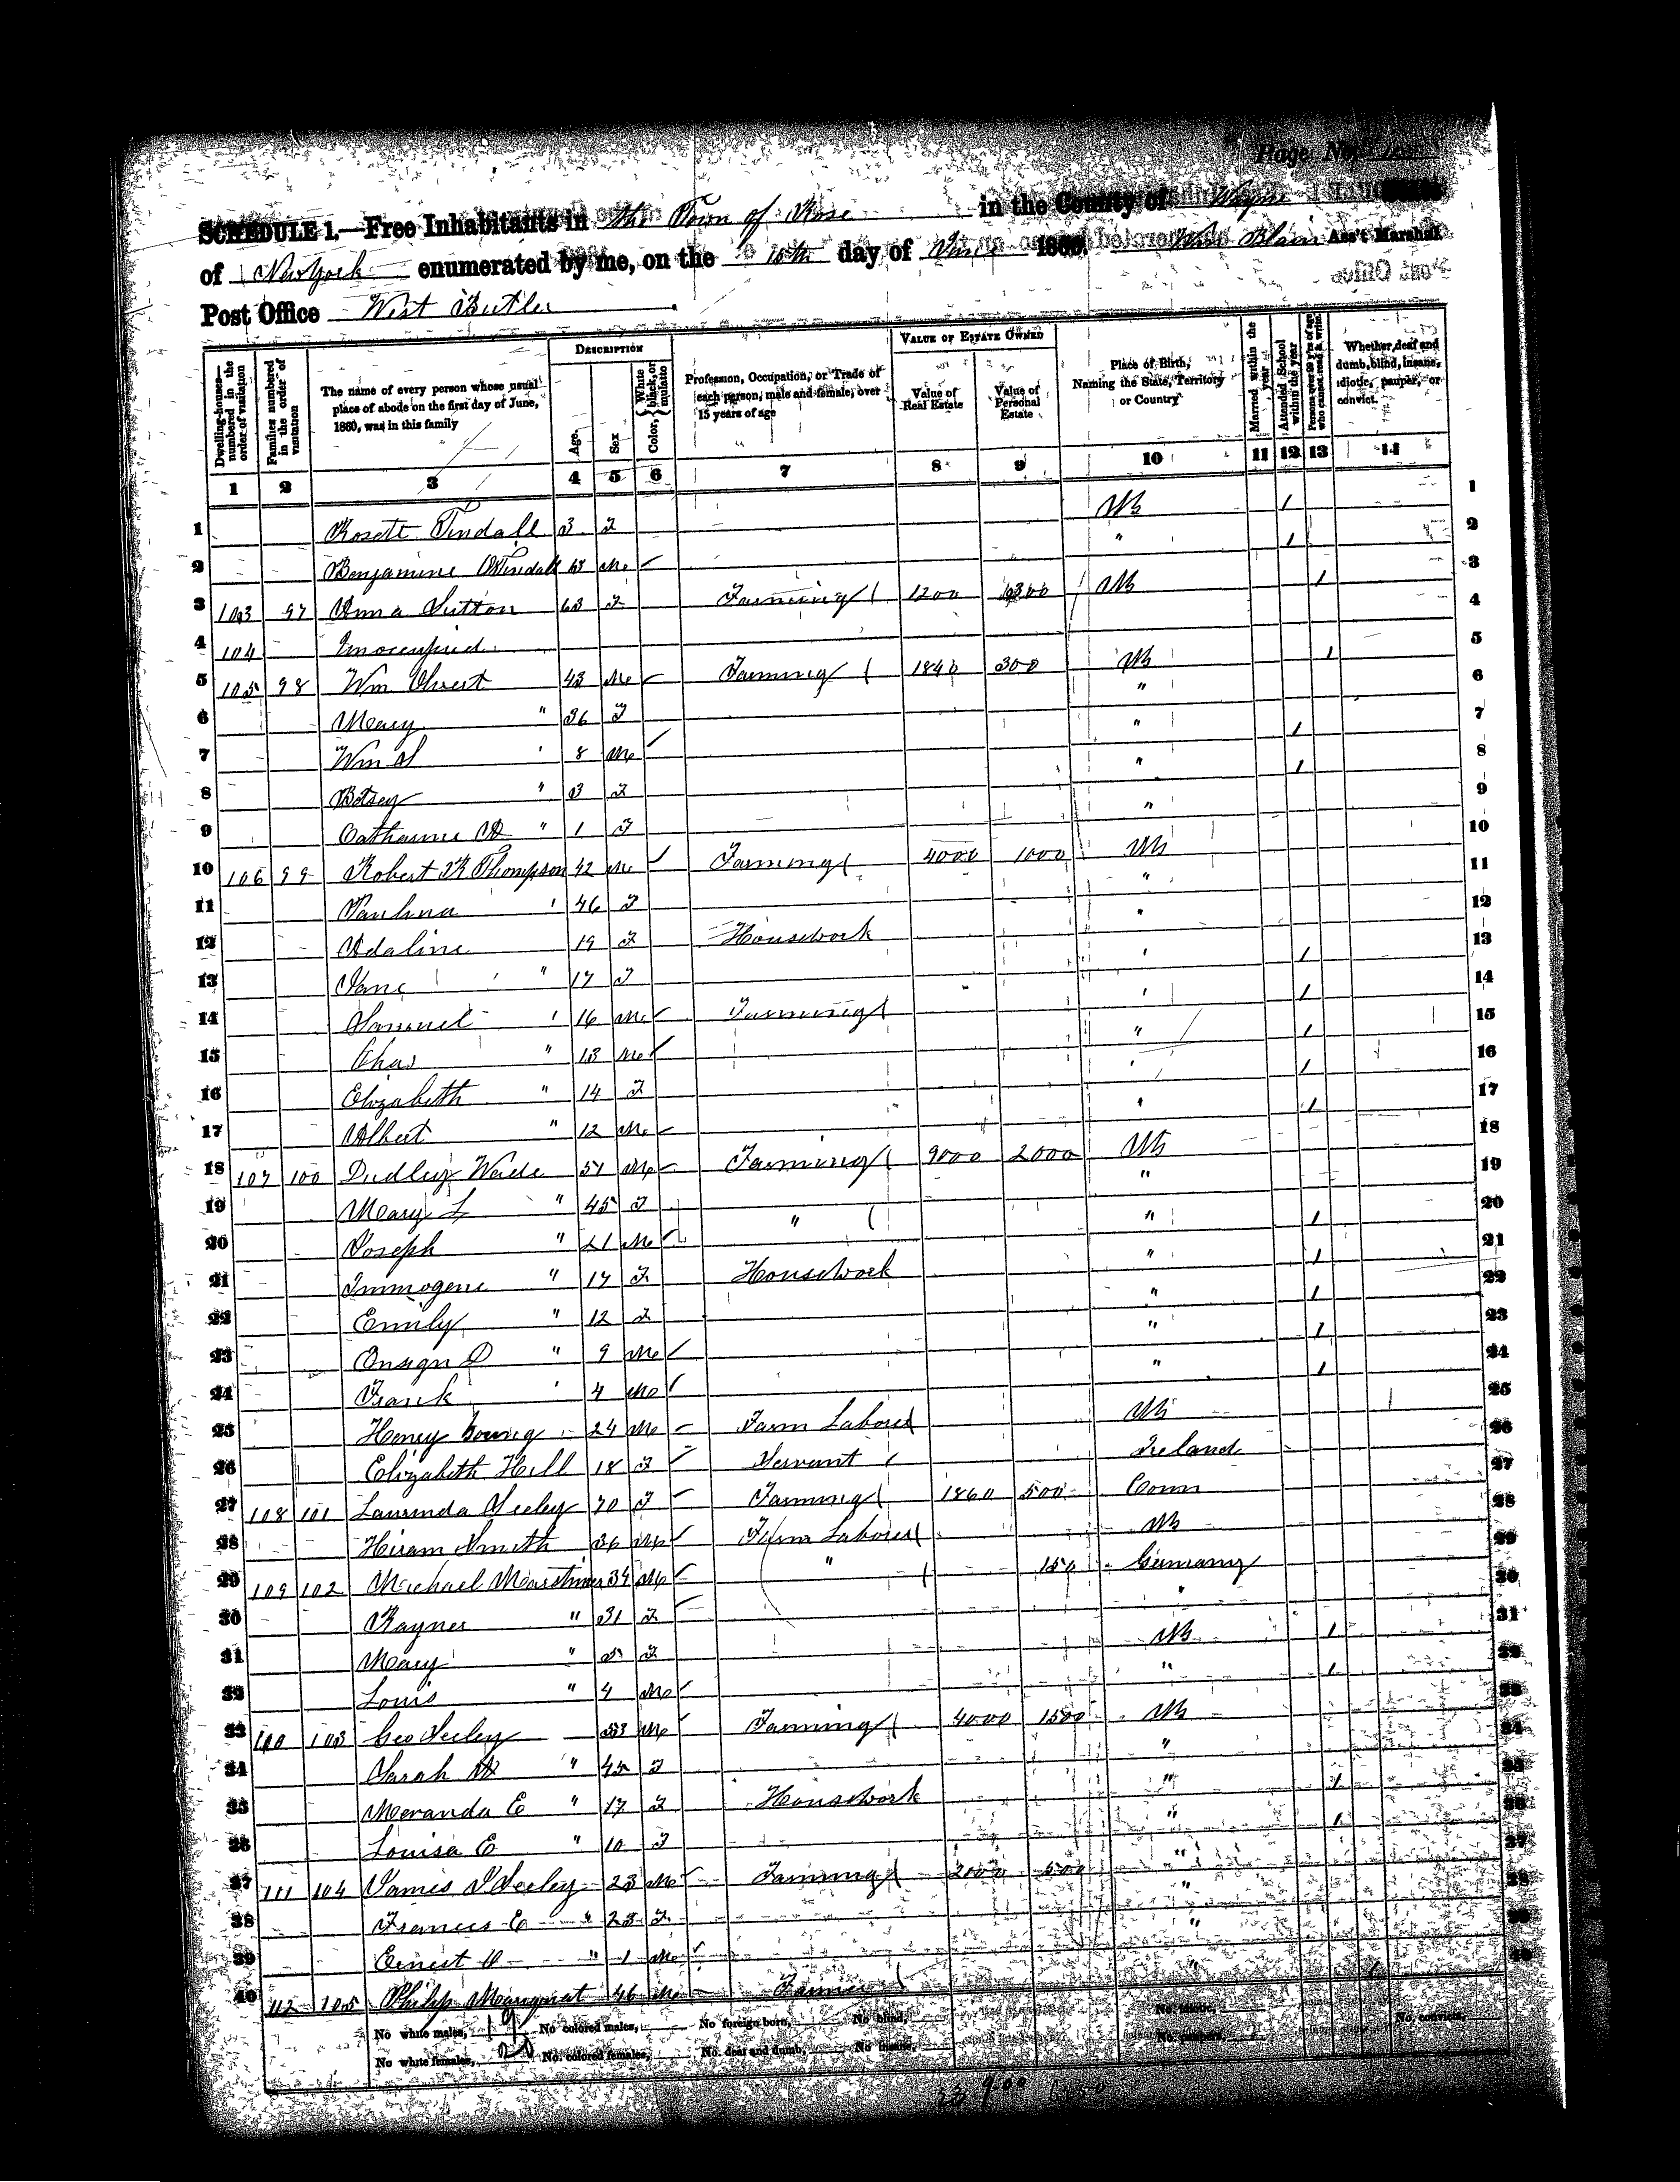 Page No.
SCHEDULE 1.—Free Inhabitants in the Town of Rose in the County of Wayne State
of New York enumerated by me, on the 15th day of June 1860. Wm Blain Ass't Marshall
Post Office West Butler
Dwelling-houses—numbered in the order of visitation
Families numbered in the order of visitation
The name of every person whose usual place of abode on the first day of June, 1860, was in this family
DESCRIPTION
Age.
Sex
Color, White, black, or mulatto
Profession, Occupation, or Trade of each person, male and female, over 15 years of age
VALUE OF ESTATE OWNED
Value of Real Estate
Value of Personal Estate
Place of Birth, Naming the State, Territory or Country
Married within the year
Attended School within the year
Persons over 20 y'rs of age who cannot read & write
Whether deaf and dumb, blind, insane, idiotic, pauper, or convict.
1 2 3 4 5 6 7 8 9 10 11 12 13 14
1 Rosett Tindall 3 F NY 1
2 Benjamine Tindall M " 1
3 103 97 Anna Sutton 63 F Farming 1200 300 NY 1
4 104 Unoccupied
5 105 98 Wm 43 M Farming 1840 300 NY 1
6 Mary " 36 F "
7 Wm " 8 M " 1
8 Betsey " 3 F " 1
9 Catharine A " 1 F "
10 106 99 Robert R Thompson 42 M Farming 4000 1000 NY
11 Paulina " 46 F "
12 Adaline 19 F Housework "
13 Jane " 17 F " 1
14 Samuel " 16 M Farming " 1
15 Chas " 13 M " 1
16 Elizabeth " 14 F " 1
17 Albert " 12 M " 1
18 107 100 Dudley Wade 51 M Farming 9000 2000 NY
19 Mary L " 45 F "
20 Joseph " 21 M " " 1
21 Immogene " 17 F Housework " 1
22 Emily " 12 F " 1
23 Onsign D " 9 M " 1
24 Frank " 4 M " 1
25 Henry Young 24 M Farm Labour NY
26 Elizabeth Hill 18 F Servant Ireland
27 108 101 Laurinda Seeley 70 F Farming 1860 500 Conn
28 Hiram Smith 36 M Farm Labour NY
29 109 102 Michael 34 M " 150 Germany
30 Rayner " 31 F "
31 Mary " 5 F NY 1
32 Louis " 4 M " 1
33 110 103 Geo Seeley 53 M Farming 4000 1500 NY
34 Sarah A " 45 F "
35 Meranda E " 17 F Housework " 1
36 Louisa E " 10 F " 1
37 111 104 James Seeley 23 M Farming 2000 500 "
38 Frances E " 23 F "
39 Ernest " 1 M "
40 112 105 Philip 46 M Farmer " 1
No white males, 19 No colored males, No foreign born, No blind,
No white females, 20 No. colored females, No. deaf and dumb, No insane, No. convicts,